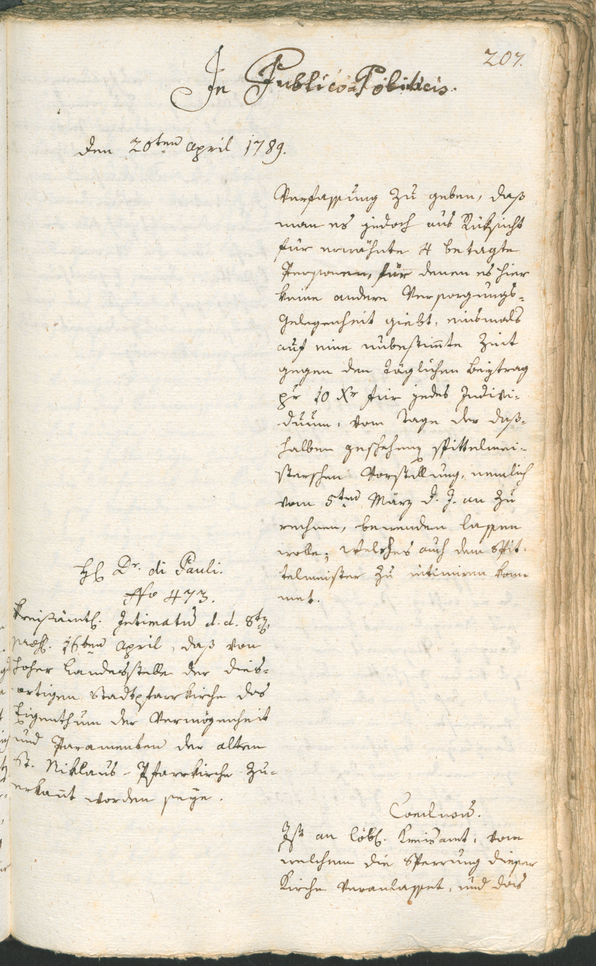 207.
In Publico Politicis.
den 20ten April 1789.
Verfassung zu geben, daß
man es jedoch aus Rüksicht
für ermähnte 4 betagte
Personen, für denen es hier
keine andere Versorgungs-
gelegenheit giebt, einsmals
auf eine unbestimte Zeit
gegen den täglichen Beytrag
pr 10 Xr für jedes Indivi-
duum, vom Tage der daß-
halben geschehenen spittelmei-
sterschen Vorstellung, nemlich
vom 5ten März d. J. an zu
rechnen, bewenden lassen
wolle; welches auch dem Spit-
telmeister zu intimiren kom-
met.
H Dr. di Pauli.
No 473.
Kreisämtl. Intimatum d. d. 8t
praes. 16ten April, daß von
hoher Landesstelle der dies-
ortigen Stadtpfarrkirche das
Eigenthum der Vermögenheit
und Paramenten der alten
St. Niklaus-Pfarrkirche zu-
erkant worden seye.
Conclusum.
Ist an löbl. Kreisamt, von
welchem die Sperrung dieser
Kirche veranlasset, und das